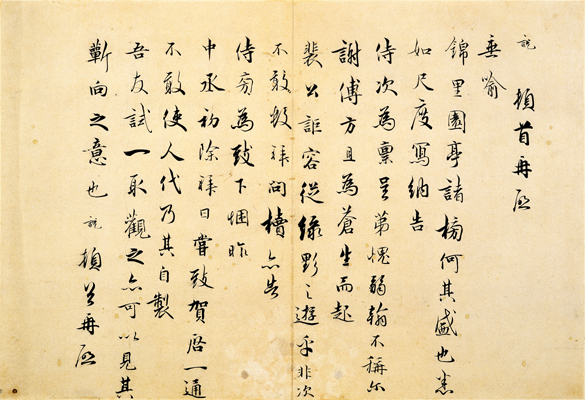 說 頓首再啟
垂喻
錦里園亭諸榜何其盛也悉
如尺度寫納告
侍次為稟呈第愧弱翰不稱尒
謝傅方且為蒼生而起
裴公詎容從綠野之遊乎非次
不敢數拜問牘亦告
侍旁為致下悃昨
中丞初除拜日嘗致賀啟一通
不敢使人代乃其自製
吾友試一取觀之亦可以見其
蘄向之意也 說 頓首再啟